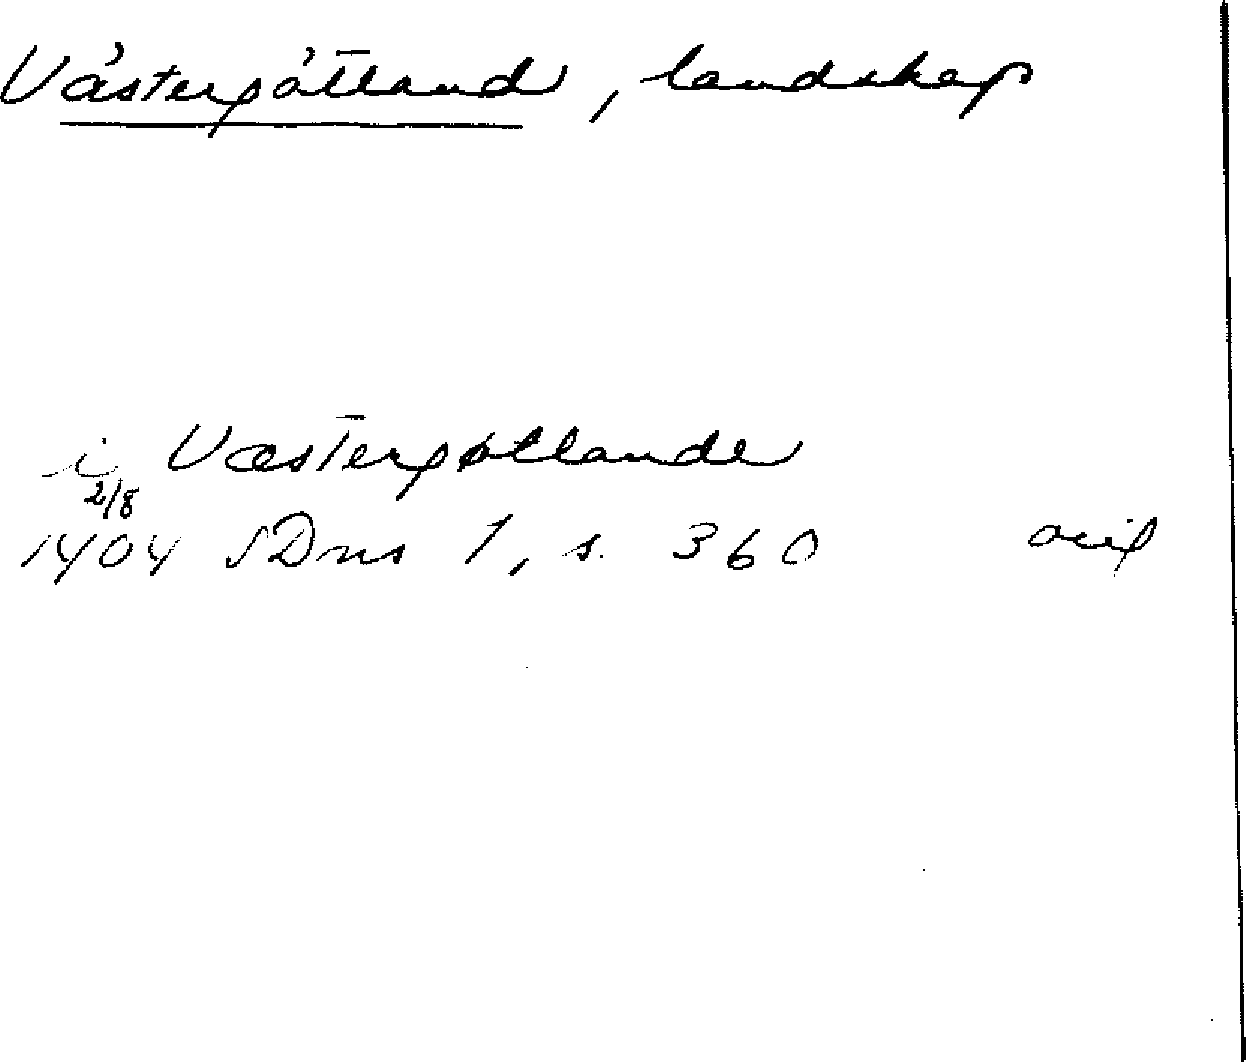 Västergötland, landskap
i Væstergøtlande
2/8
1404 SDns 1, s. 360 avig